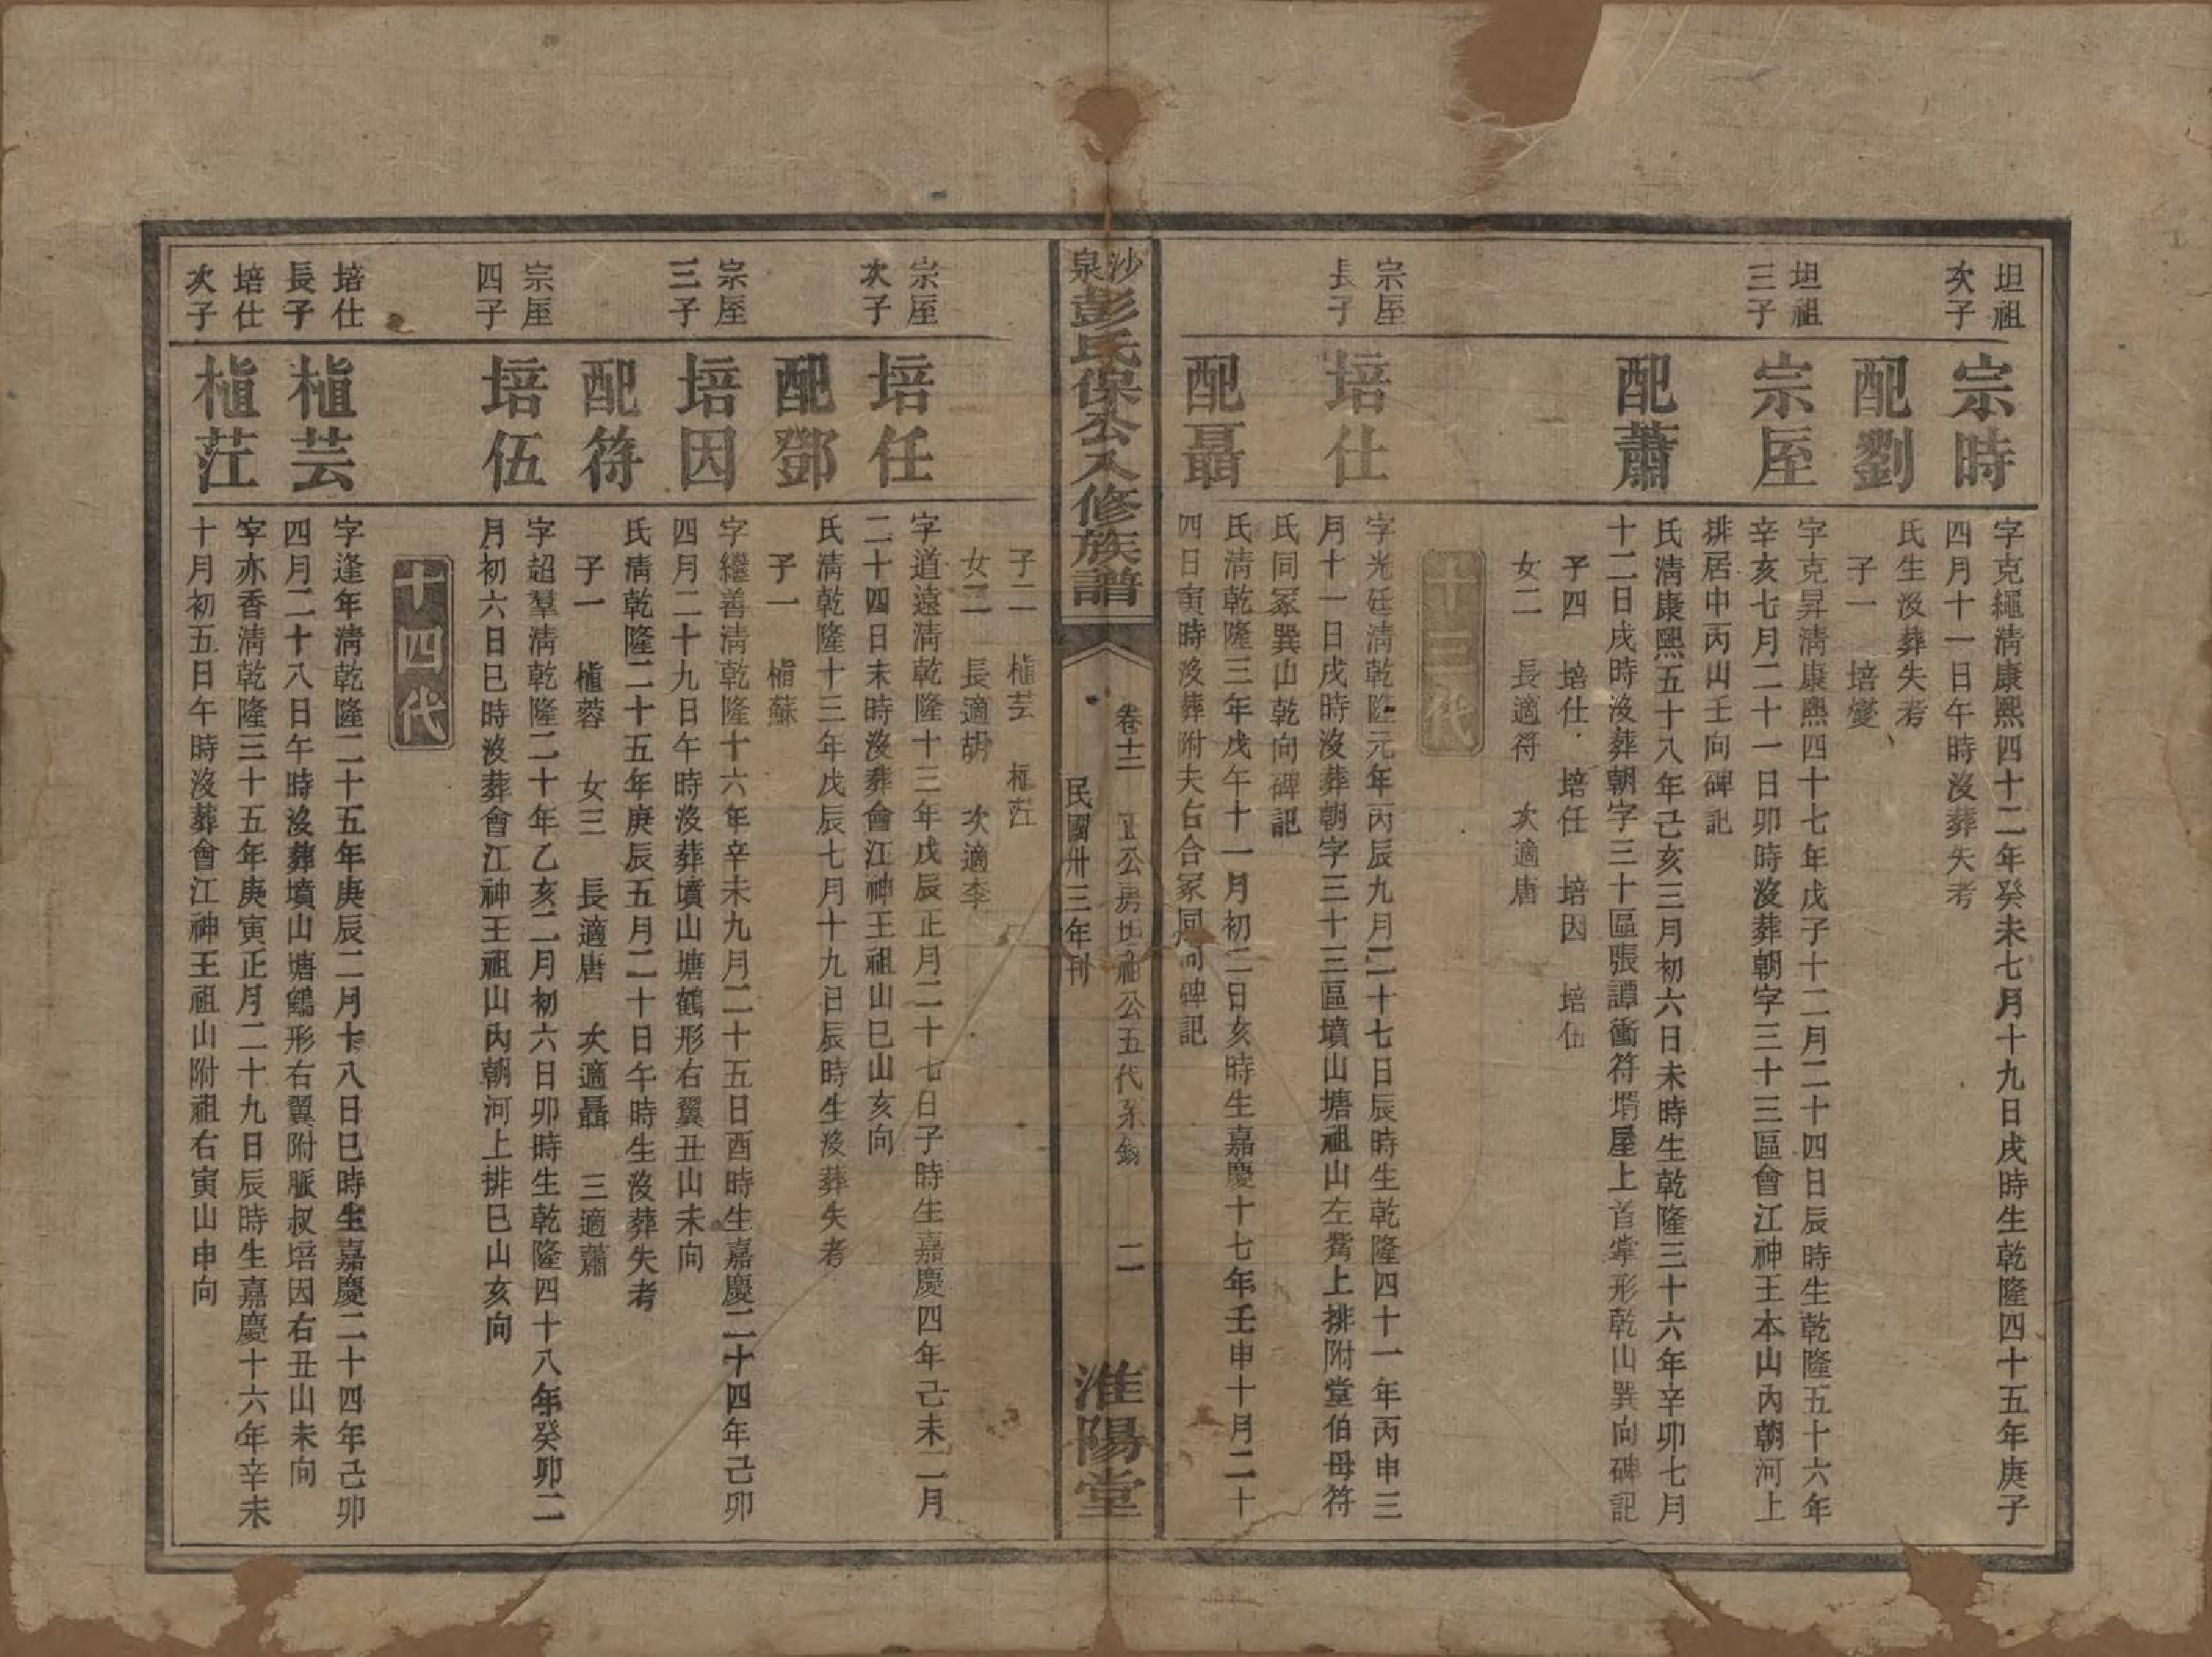 坦祖
次子
宗時
字克繩淸康熙四十二年癸未七月十九日戌時生乾隆四十五年庚子
四月十一日午時沒葬失考
配劉
氏生沒葬失考
子一 培燮
坦祖
三子
宗屋
字克昇淸康熙四十七年戊子十二月二十四日辰時生乾隆五十六年
辛亥七月二十一日卯時沒葬朝字三十三區會江神王本山內朝河上
排居中丙山壬向碑記
配蕭
氏淸康熙五十八年己亥三月初六日未時生乾隆三十六年辛卯七月
十二日戌時沒葬朝字三十區張譚衝符壻屋上首掌形乾山巽向碑記
子四 培仕 培任 培因 培伍
女二 長適符 次適唐
十三代
宗屋
長子
培仕
字光廷淸乾隆元年丙辰九月二十七日辰時生乾隆四十一年丙申三
月十一日戌時沒葬朝字三十三區墳山塘祖山左觜上排附堂伯母符
氏同冢巽山乾向碑記
配聶
氏淸乾隆三年戊午十一月初二日亥時生嘉慶十七年壬申十月二十
四日寅時沒葬附夫右合冢同向碑記
沙泉彭氏保公八修族譜
卷十二 正公房坦祖公五代系錄 二
民國卅三年刊
淮陽堂
子二 植芸 植茳
女二 長適胡 次適李
宗屋
次子
培任
字道遠淸乾隆十三年戊辰正月二十七日子時生嘉慶四年己未二月
二十四日未時沒葬會江神王祖山巳山亥向
配鄧
氏淸乾隆十三年戊辰七月十九日辰時生沒葬失考
子一 植蘇
宗屋
三子
培因
字繼善淸乾隆十六年辛未九月二十五日酉時生嘉慶二十四年己卯
四月二十九日午時沒葬墳山塘鶴形右翼丑山未向
配符
氏淸乾隆二十五年庚辰五月二十日午時生沒葬失考
子一 植蓉 女三 長適唐 次適聶 三適蕭
宗屋
四子
培伍
字超羣淸乾隆二十年乙亥二月初六日卯時生乾隆四十八年癸卯二
月初六日巳時沒葬會江神王祖山內朝河上排巳山亥向
十四代
培仕
長子
植芸
字逢年淸乾隆二十五年庚辰二月十八日巳時生嘉慶二十四年己卯
四月二十八日午時沒葬墳山塘鶴形右翼附脈叔培因右丑山未向
培仕
次子
植茳
字亦香淸乾隆三十五年庚寅正月二十九日辰時生嘉慶十六年辛未
十月初五日午時沒葬會江神王祖山附祖右寅山申向